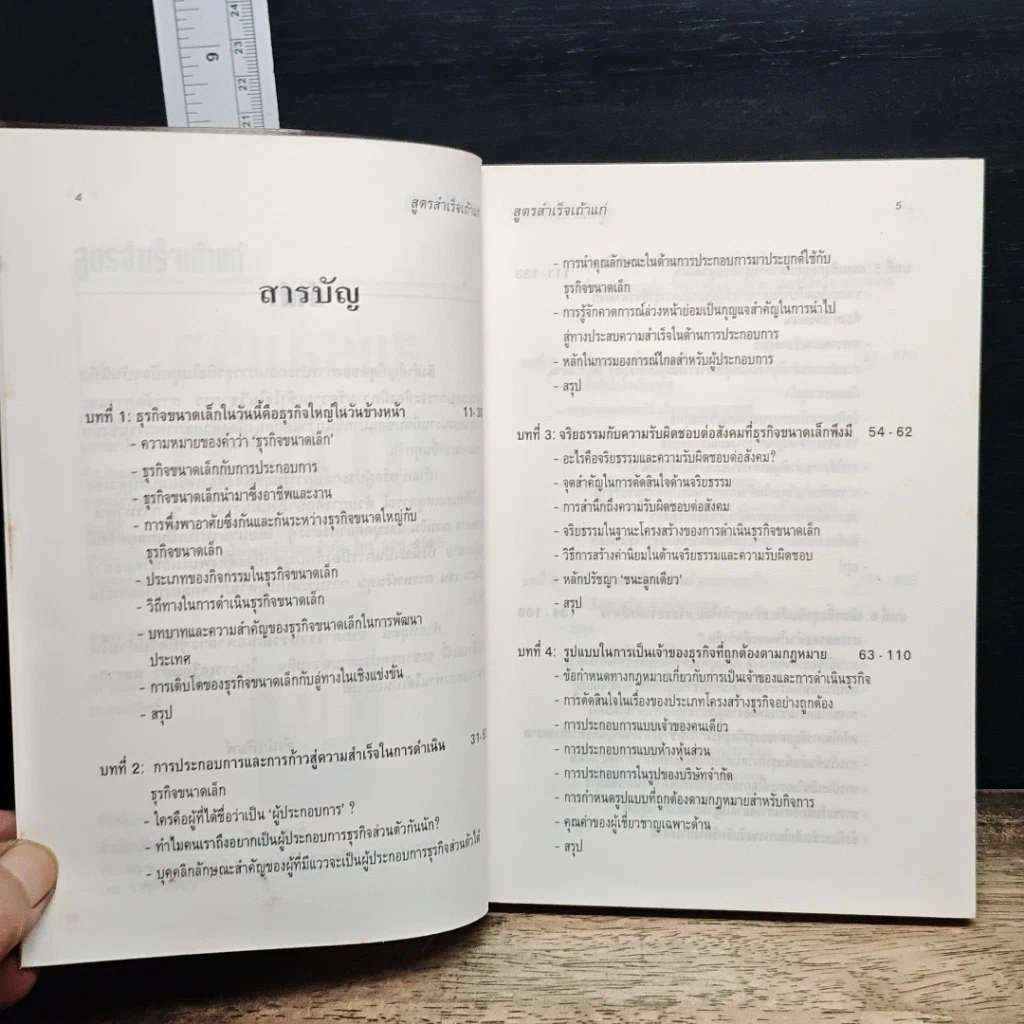 24
23
9
22
21
4
สูตรสำเร็จเถ้าแก่
สารบัญ
บทที่ 1: ธุรกิจขนาดเล็กในวันนี้คือธุรกิจใหญ่ในวันข้างหน้า 11-30
- ความหมายของคำว่า ‘ธุรกิจขนาดเล็ก’
- ธุรกิจขนาดเล็กกับการประกอบการ
- ธุรกิจขนาดเล็กนำมาซึ่งอาชีพและงาน
- การพึ่งพาอาศัยซึ่งกันและกันระหว่างธุรกิจขนาดใหญ่กับ
ธุรกิจขนาดเล็ก
- ประเภทของกิจกรรมในธุรกิจขนาดเล็ก
- วิถีทางในการดำเนินธุรกิจขนาดเล็ก
- บทบาทและความสำคัญของธุรกิจขนาดเล็กในการพัฒนา
ประเทศ
- การเติบโตของธุรกิจขนาดเล็กกับลู่ทางในเชิงแข่งขัน
- สรุป
บทที่ 2: การประกอบการและการก้าวสู่ความสำเร็จในการดำเนิน
ธุรกิจขนาดเล็ก
- ใครคือผู้ที่ได้ชื่อว่าเป็น ‘ผู้ประกอบการ’ ?
- ทำไมคนเราถึงอยากเป็นผู้ประกอบการธุรกิจส่วนตัวกันนัก?
- บุคคลิกลักษณะสำคัญของผู้ที่มีแววจะเป็นผู้ประกอบการธุรกิจส่วนตัวได้
สูตรสำเร็จเถ้าแก่
5
- การนำคุณลักษณะในด้านการประกอบการมาประยุกต์ใช้กับ
ธุรกิจขนาดเล็ก
- การรู้จักคาดการณ์ล่วงหน้าย่อมเป็นกุญแจสำคัญในการนำไป
สู่ทางประสบความสำเร็จในด้านการประกอบการ
- หลักในการมองการณ์ไกลสำหรับผู้ประกอบการ
- สรุป
บทที่ 3: จริยธรรมกับความรับผิดชอบต่อสังคมที่ธุรกิจขนาดเล็กพึงมี 54 - 62
- อะไรคือจริยธรรมและความรับผิดชอบต่อสังคม?
- จุดสำคัญในการตัดสินใจด้านจริยธรรม
- การสำนึกถึงความรับผิดชอบต่อสังคม
- จริยธรรมในฐานะโครงสร้างของการดำเนินธุรกิจขนาดเล็ก
- วิธีการสร้างค่านิยมในด้านจริยธรรมและความรับผิดชอบ
- หลักปรัชญา ‘ชนะลูกเดียว’
- สรุป
บทที่ 4: รูปแบบในการเป็นเจ้าของธุรกิจที่ถูกต้องตามกฎหมาย 63 - 110
- ข้อกำหนดทางกฎหมายเกี่ยวกับการเป็นเจ้าของและการดำเนินธุรกิจ
- การตัดสินใจในเรื่องของประเภทโครงสร้างธุรกิจอย่างถูกต้อง
- การประกอบการแบบเจ้าของคนเดียว
- การประกอบการแบบห้างหุ้นส่วน
- การประกอบการในรูปของบริษัทจำกัด
- การกำหนดรูปแบบที่ถูกต้องตามกฎหมายสำหรับกิจการ
- คุณค่าของผู้เชี่ยวชาญเฉพาะด้าน
- สรุป